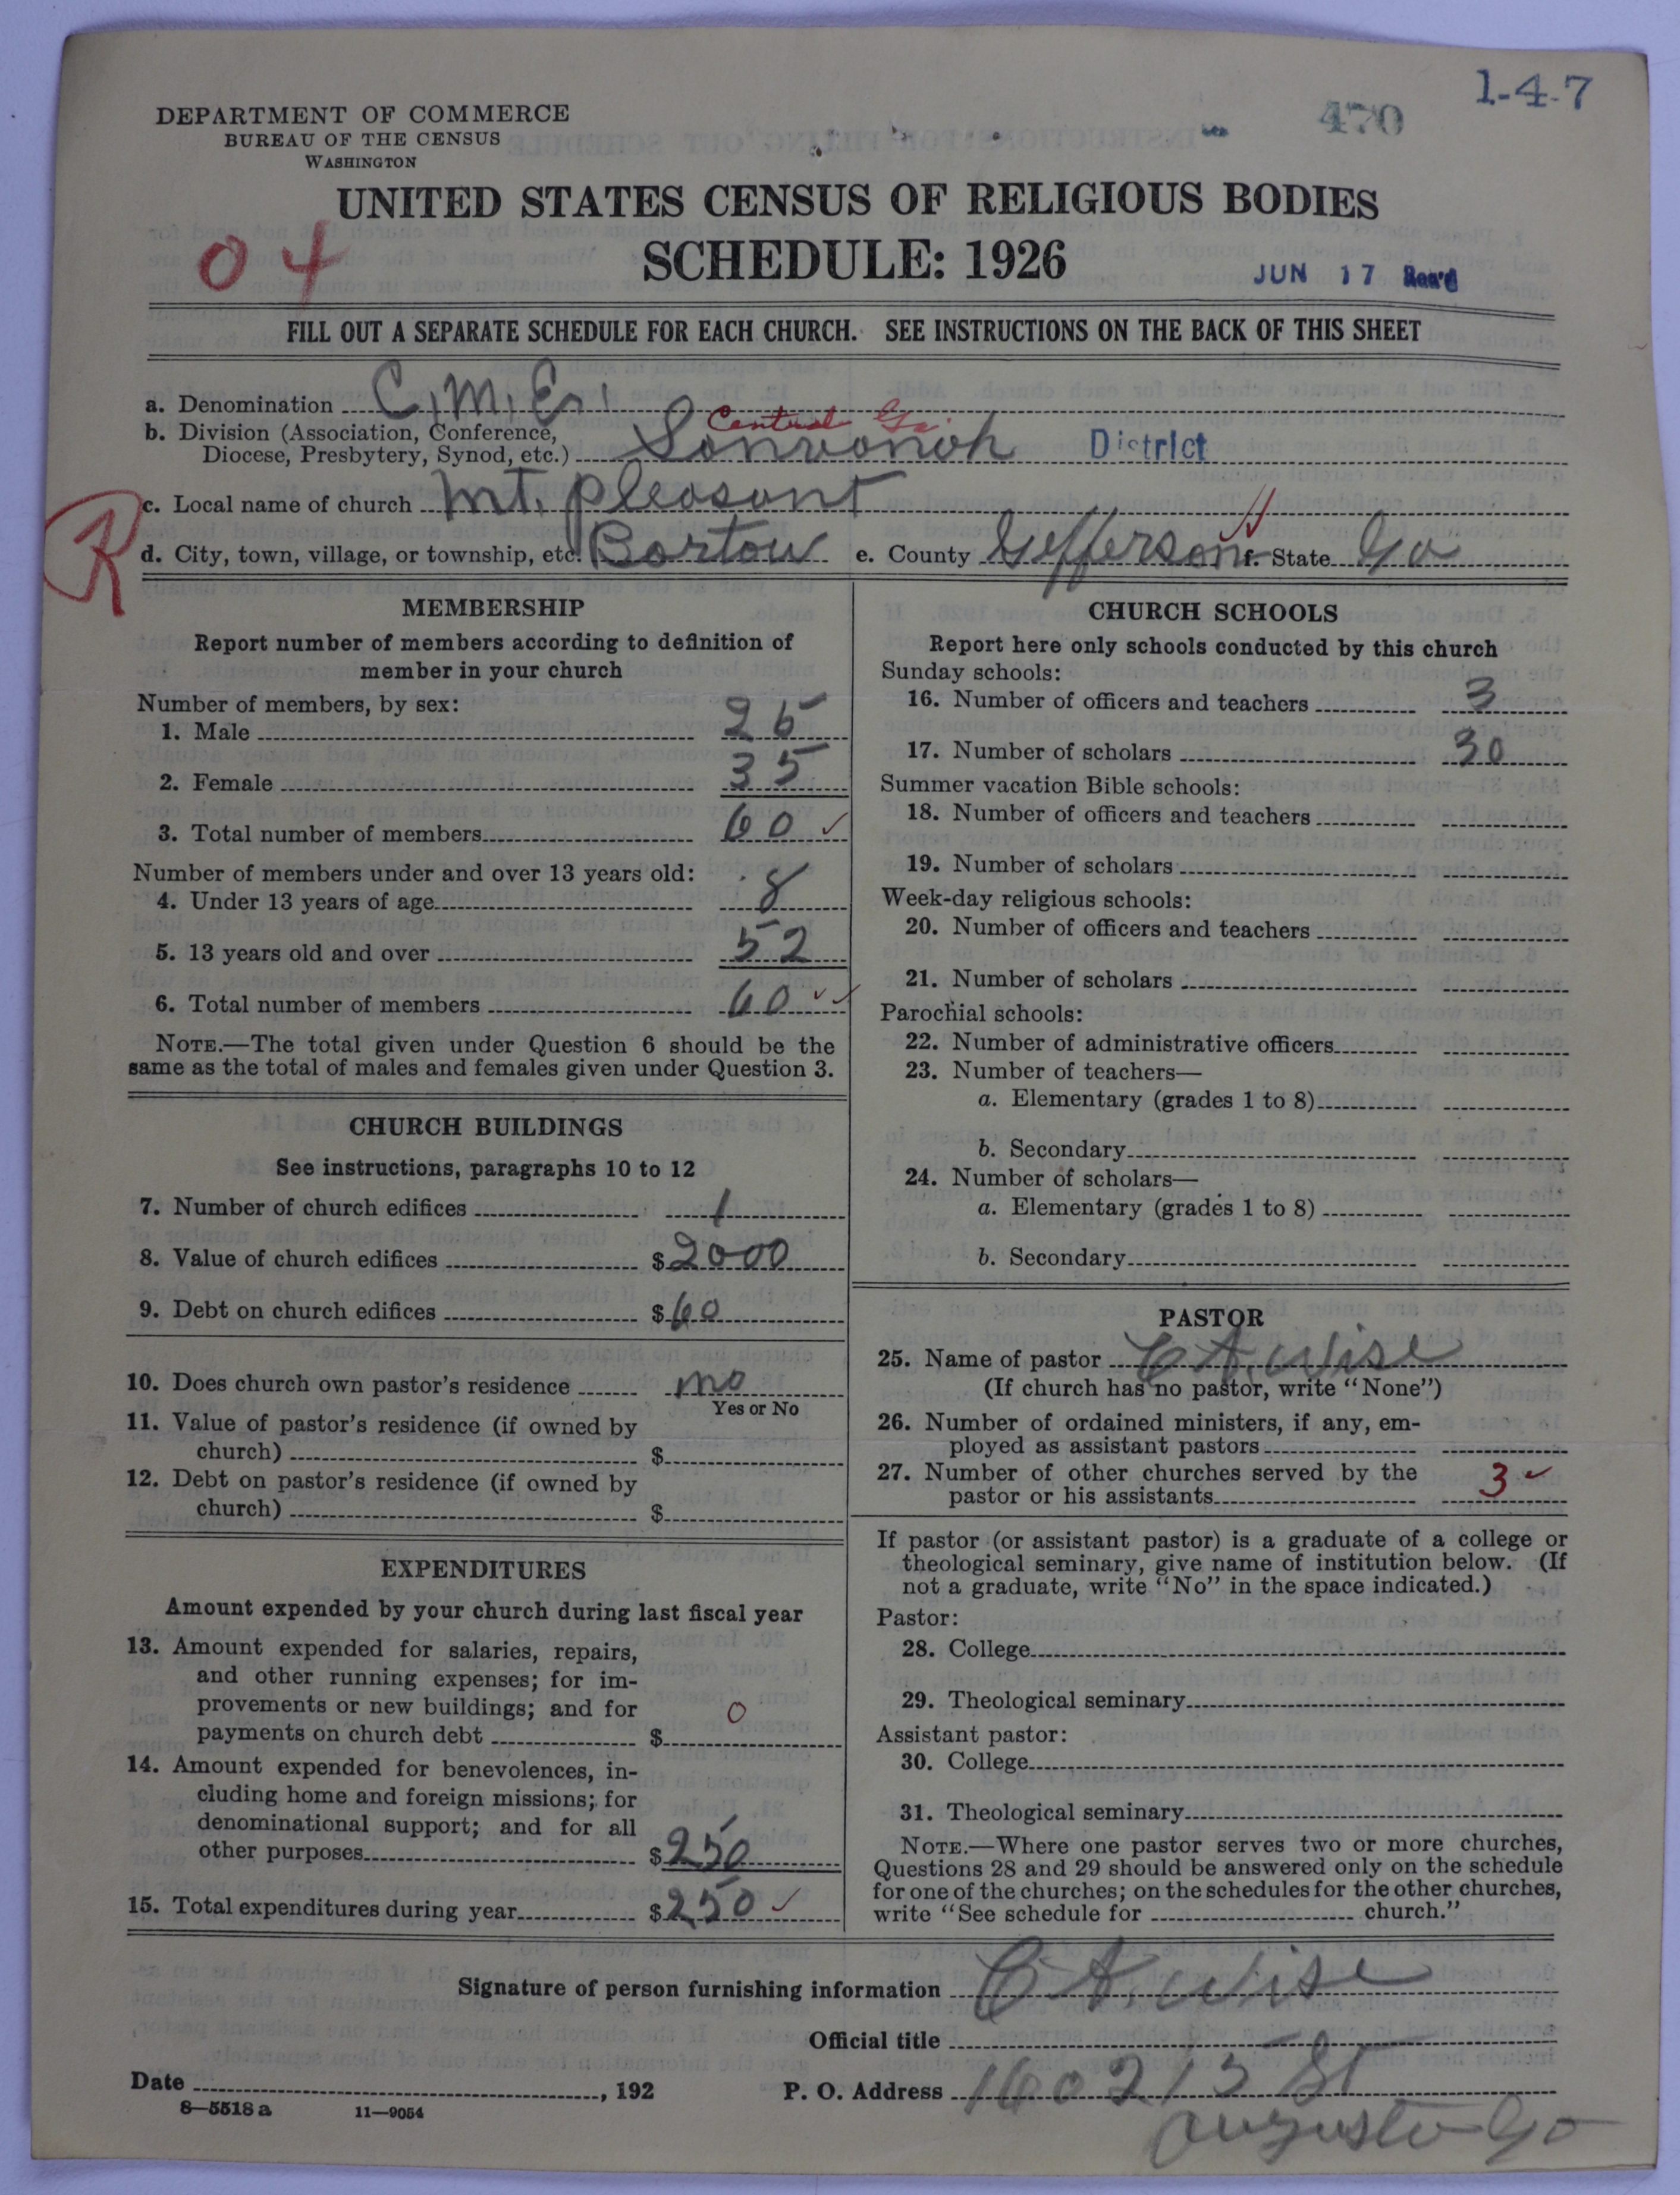 1-4-7
470
DEPARTMENT OF COMMERCE
BUREAU OF THE CENSUS
WASHINGTON
UNITED STATES CENSUS OF RELIGIOUS BODIES
04
SCHEDULE: 1926
JUN 17 Rec'd
FILL OUT A SEPARATE SCHEDULE FOR EACH CHURCH. SEE INSTRUCTIONS ON THE BACK OF THIS SHEET
a. Denomination C.M.E.
Central Ga.
b. Division (Association, Conference, Diocese, Presbytery, Synod, etc.) Sonvonoh District
R
c. Local name of church Mt. Pleasant
d. City, town, village, or township, etc. Bartow e. County Jefferson f. State Ga
MEMBERSHIP
Report number of members according to definition of
member in your church
Number of members, by sex:
1. Male 25
2. Female 35
3. Total number of members 60 ✓
Number of members under and over 13 years old:
4. Under 13 years of age 8
5. 13 years old and over 52
6. Total number of members 60 ✓✓
NOTE.—The total given under Question 6 should be the
same as the total of males and females given under Question 3.
CHURCH BUILDINGS
See instructions, paragraphs 10 to 12
7. Number of church edifices 1
8. Value of church edifices $2000
9. Debt on church edifices $60
10. Does church own pastor's residence no
Yes or No
11. Value of pastor's residence (if owned by
church) $
12. Debt on pastor's residence (if owned by
church) $
EXPENDITURES
Amount expended by your church during last fiscal year
13. Amount expended for salaries, repairs,
and other running expenses; for im-
provements or new buildings; and for
payments on church debt $ 0
14. Amount expended for benevolences, in-
cluding home and foreign missions; for
denominational support; and for all
other purposes $250
15. Total expenditures during year $250 ✓
CHURCH SCHOOLS
Report here only schools conducted by this church
Sunday schools:
16. Number of officers and teachers 3
17. Number of scholars 30
Summer vacation Bible schools:
18. Number of officers and teachers
19. Number of scholars
Week-day religious schools:
20. Number of officers and teachers
21. Number of scholars
Parochial schools:
22. Number of administrative officers
23. Number of teachers—
a. Elementary (grades 1 to 8)
b. Secondary
24. Number of scholars—
a. Elementary (grades 1 to 8)
b. Secondary
PASTOR
25. Name of pastor C A. Wise
(If church has no pastor, write "None")
26. Number of ordained ministers, if any, em-
ployed as assistant pastors
27. Number of other churches served by the
pastor or his assistants 3 ✓
If pastor (or assistant pastor) is a graduate of a college or
theological seminary, give name of institution below. (If
not a graduate, write "No" in the space indicated.)
Pastor:
28. College
29. Theological seminary
Assistant pastor:
30. College
31. Theological seminary
NOTE.—Where one pastor serves two or more churches,
Questions 28 and 29 should be answered only on the schedule
for one of the churches; on the schedules for the other churches,
write "See schedule for church."
Signature of person furnishing information C A. Wise
Official title
Date , 192 P. O. Address 1602 15 St
8—5518 a 11—9054
Augusta Ga